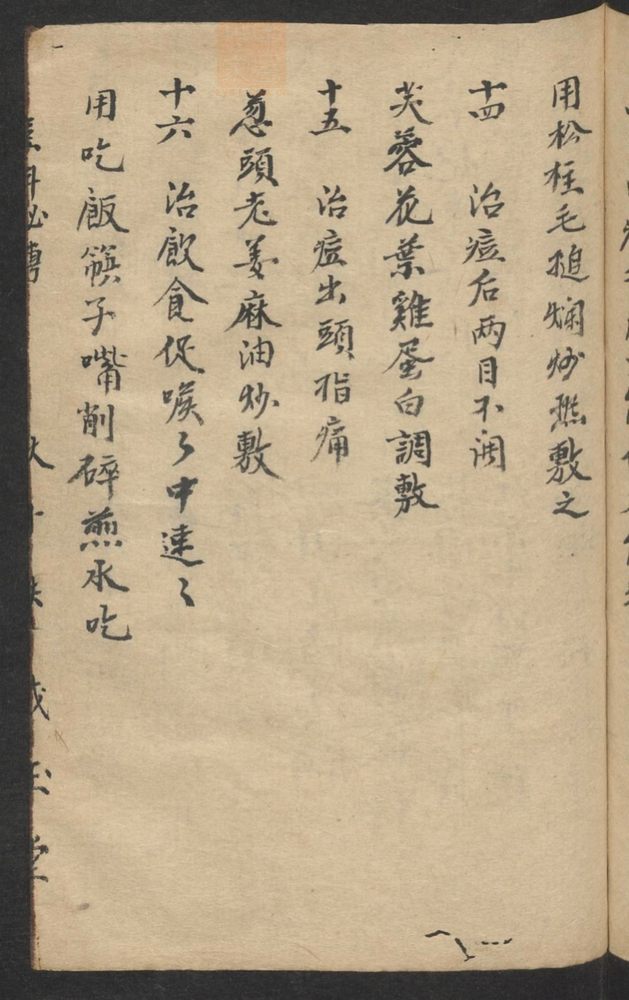 用松柱毛搥焖炒熱敷之
十四 治痘后两目不開
芙蓉花葉雞蛋白調敷
十五 治痘出頭指痛
葱頭老姜麻油炒敷
十六 治飲食促喉々中速々
用吃飯篌子嘴削碎煎水吃